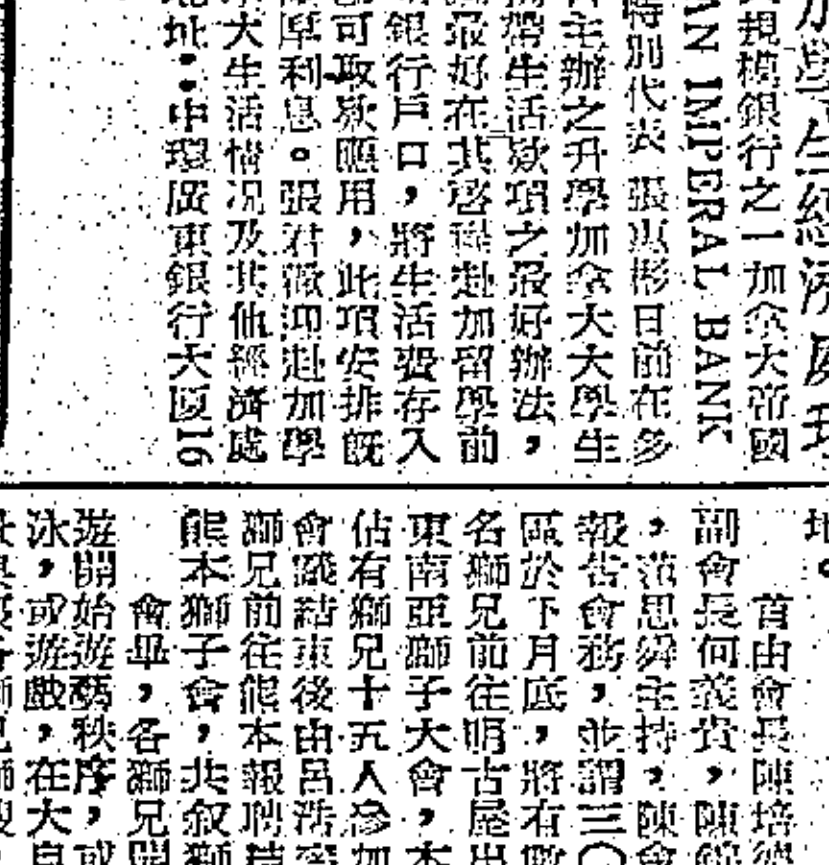 加學生經濟處理
規模銀行之一加拿大帝國
AN IMPERAL BANK
特別代表 張惠彬日前在多
主辦之升學加拿大大學生
攜帶生活欵項之最好辦法，
最好在其啓程赴加留學前
銀行戶口，將生活費存入
可取欵應用，此項安排旣
厚利息。張君歡迎赴加學
大生活情况及其他經濟處
地址：中環廣東銀行大厦16
地。
首由會長陳培德
副會長何義貴，陳錦
，范思舜主持，陳會
報告會務，並謂三〇
區於下月底，將有數
名獅兄前往明古屋出
東南亞獅子大會，本
佔有獅兄十五人參加
會議結束後由呂浩
獅兄前往熊本報聘
熊本獅子會，共叙獅
會畢，各獅兄開
遊開始遊藝秩序，或
泳，或遊戲，在大自